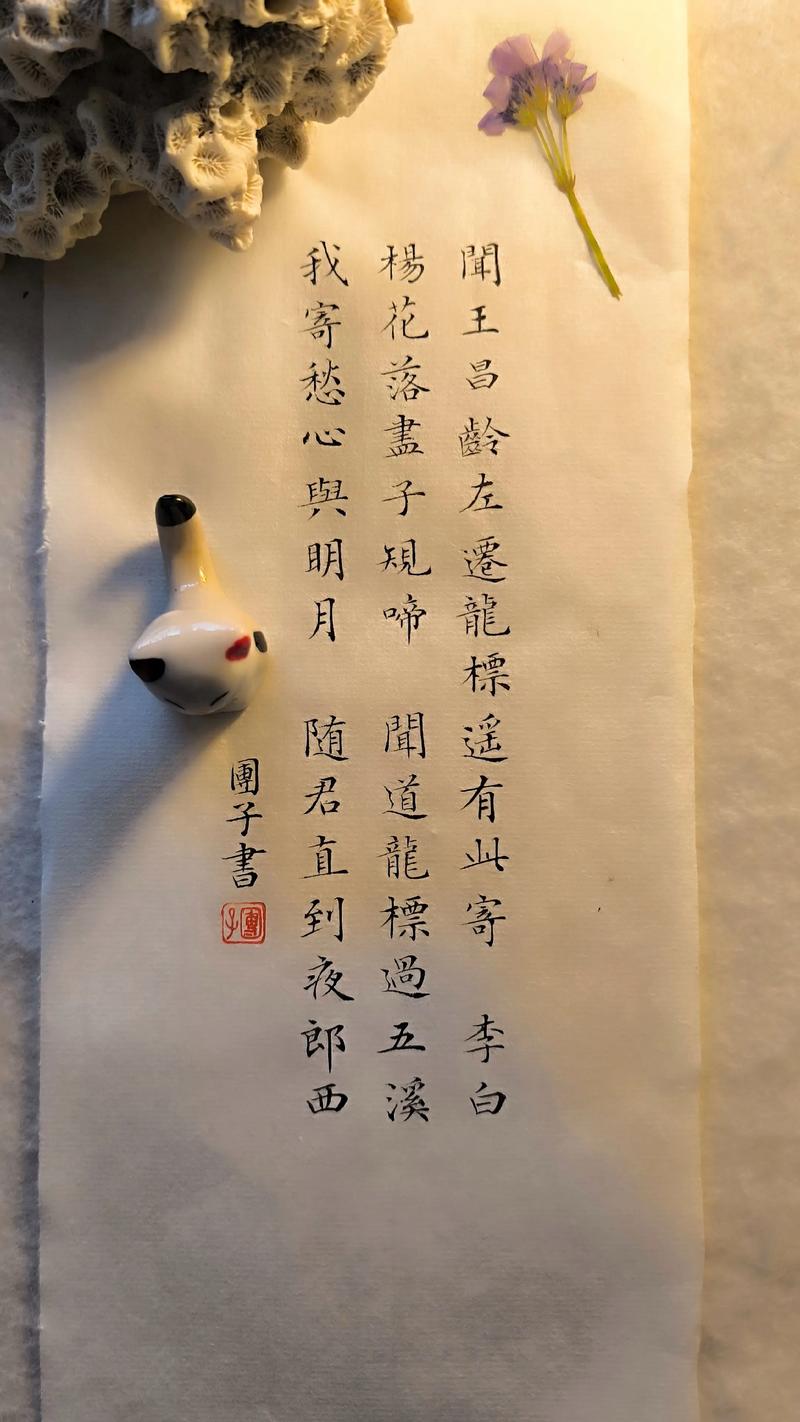 聞王昌齡左遷龍標遥有此寄 李白
楊花落盡子規啼 聞道龍標過五溪
我寄愁心與明月 随君直到夜郎西
團子書
團子